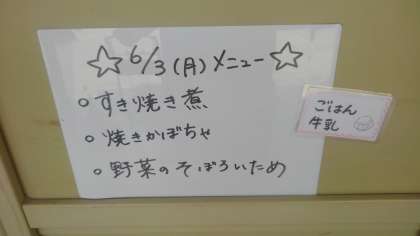 ☆6/3(月)メニュー☆
○すき焼き煮
○焼きかぼちゃ
○野菜のそぼろいため
ごはん
牛乳